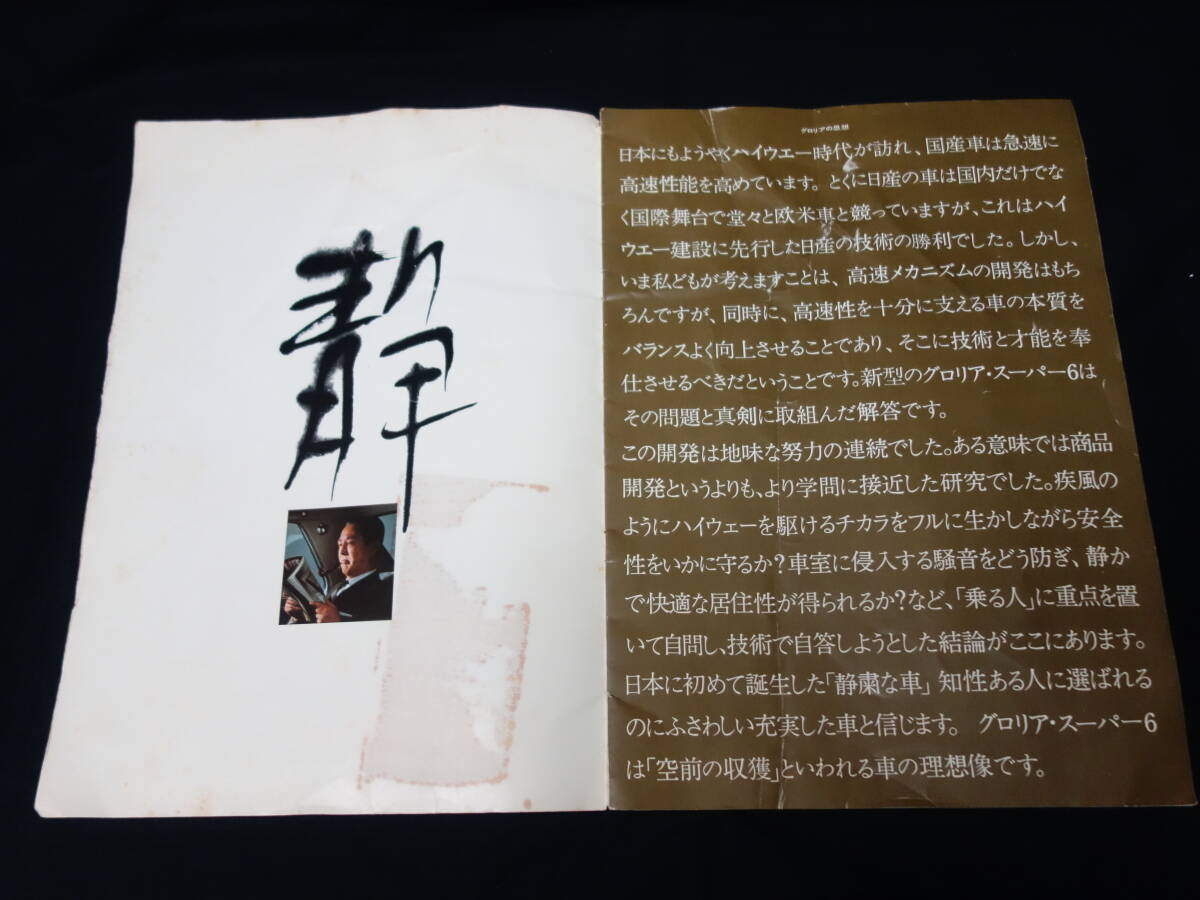 静
グロリアの思想
日本にもようやくハイウエー時代が訪れ、国産車は急速に
高速性能を高めています。とくに日産の車は国内だけでな
く国際舞台で堂々と欧米車と競っていますが、これはハイ
ウエー建設に先行した日産の技術の勝利でした。しかし、
いま私どもが考えますことは、高速メカニズムの開発はもち
ろんですが、同時に、高速性を十分に支える車の本質を
バランスよく向上させることであり、そこに技術と才能を奉
仕させるべきだということです。新型のグロリア・スーパー6は
その問題と真剣に取組んだ解答です。
この開発は地味な努力の連続でした。ある意味では商品
開発というよりも、より学問に接近した研究でした。疾風の
ようにハイウェーを駆けるチカラをフルに生かしながら安全
性をいかに守るか?車室に侵入する騒音をどう防ぎ、静か
で快適な居住性が得られるか?など、「乗る人」に重点を置
いて自問し、技術で自答しようとした結論がここにあります。
日本に初めて誕生した「静粛な車」知性ある人に選ばれる
のにふさわしい充実した車と信じます。 グロリア・スーパー6
は「空前の収獲」といわれる車の理想像です。